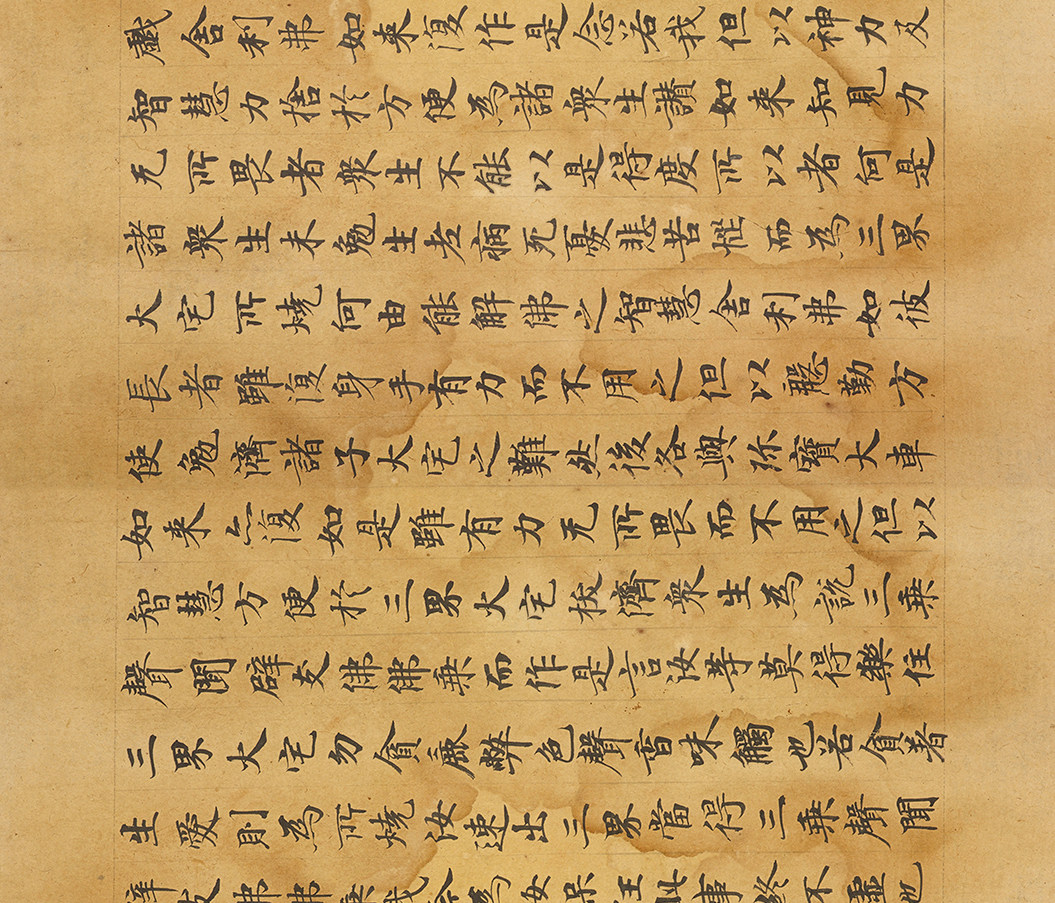 戲舍利弗如来復作是念若我但以神力及
智慧力捨於方便為諸衆生讃如来知見力
无所畏者衆生不能以是得度所以者何是
諸衆生未勉生老病死憂悲苦惱而為三界
火宅所燒何由能解佛之智慧舍利弗如彼
長者雖復身手有力而不用之但以慇勤方
便勉濟諸子火宅之難然後各與珎寶大車
如来亦復如是雖有力无所畏而不用之但以
智慧方便於三界火宅拔濟衆生為說三乗
聲聞辟支佛佛乗而作是言汝等莫得樂住
三界火宅勿貪麁弊色聲香味觸也若貪著
生愛則為所燒汝速出三界當得三乗聲聞
辟支佛佛乗我今為汝保任此事終不虛也